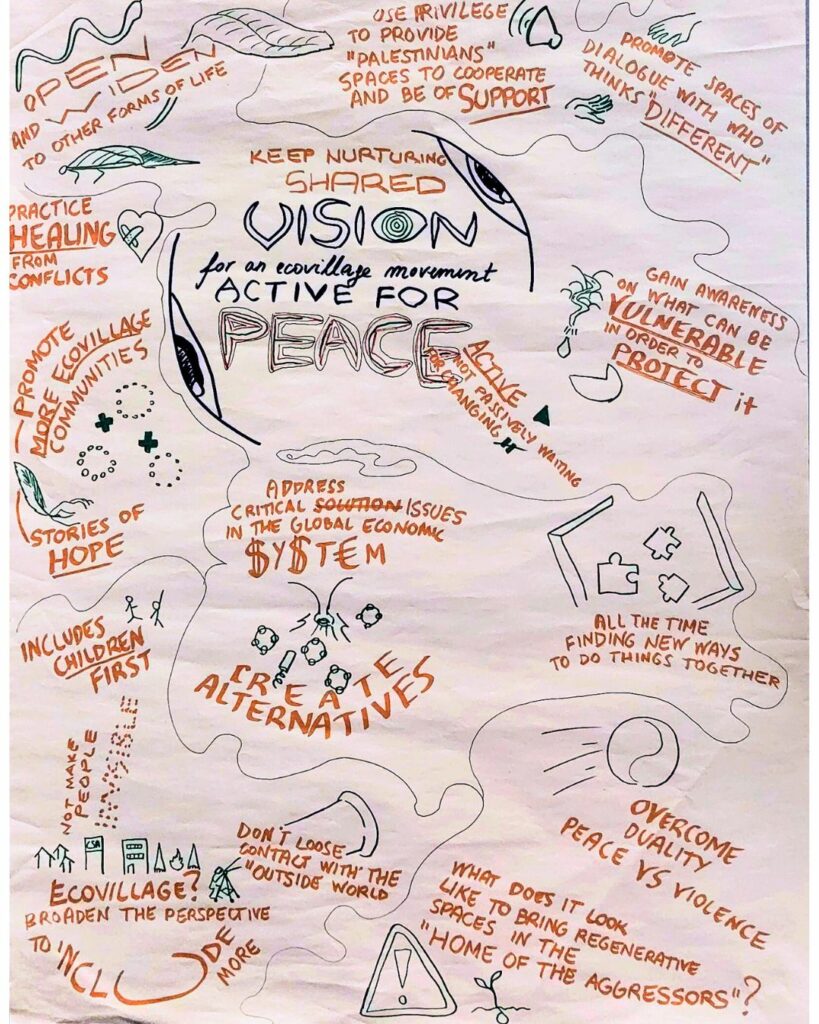 OPEN
AND WIDEN
TO OTHER FORMS OF LIFE
USE PRIVILEGE
TO PROVIDE
"PALESTINIANS"
SPACES TO COOPERATE
AND BE OF SUPPORT
PROMOTE SPACES OF
DIALOGUE WITH WHO
THINKS "DIFFERENT"
KEEP NURTURING
SHARED
VISION
for an ecovillage movement
ACTIVE FOR
PEACE
PRACTICE
HEALING
FROM
CONFLICTS
GAIN AWARENESS
ON WHAT CAN BE
VULNERABLE
IN ORDER TO
PROTECT it
ACTIVE
NOT PASSIVELY WAITING
FOR CHANGING
PROMOTE
MORE ECOVILLAGE
COMMUNITIES
STORIES OF
HOPE
ADDRESS
CRITICAL SOLUTION ISSUES
IN THE GLOBAL ECONOMIC
$Y$T€M
CREATE
ALTERNATIVES
ALL THE TIME
FINDING NEW WAYS
TO DO THINGS TOGETHER
INCLUDES
CHILDREN
FIRST
NOT MAKE
PEOPLE
INVISIBLE
CSA
ECOVILLAGE?
BROADEN THE PERSPECTIVE
TO INCLUDE
MORE
DON'T LOOSE
CONTACT WITH THE
"OUTSIDE WORLD
OVERCOME
DUALITY
PEACE VS VIOLENCE
WHAT DOES IT LOOK
LIKE TO BRING REGENERATIVE
SPACES IN THE
"HOME OF THE AGGRESSORS"?